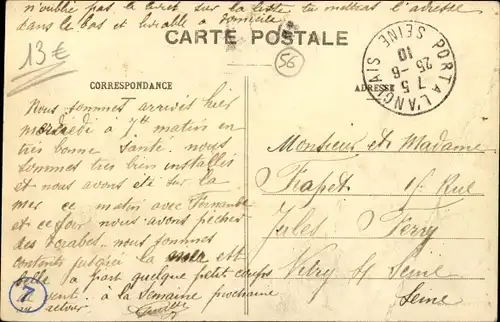 n'oublie pas le livret sur la liste tu mettras l'adresse
dans le bas et livrable a domicile
13€
CARTE POSTALE
56
PORT A L'ANGLAIS SEINE
7 5
25 -6
10
CORRESPONDANCE
ADRESSE
Nous sommes arrivés hier
mercredi à 7h matin en
très bonne santé. nous
sommes très bien installés
et nous avons été sur la
mer ce matin avec Fernande
et ce soir nous avons pêché
des crabes. nous sommes
contents jusqu'à la mer est
belle à part quelque petit coups
de vent. à la semaine prochaine
au revoir
Monsieur et Madame
Frapet 15 Rue
Jules Ferry
Vitry s/ Seine
Seine
7